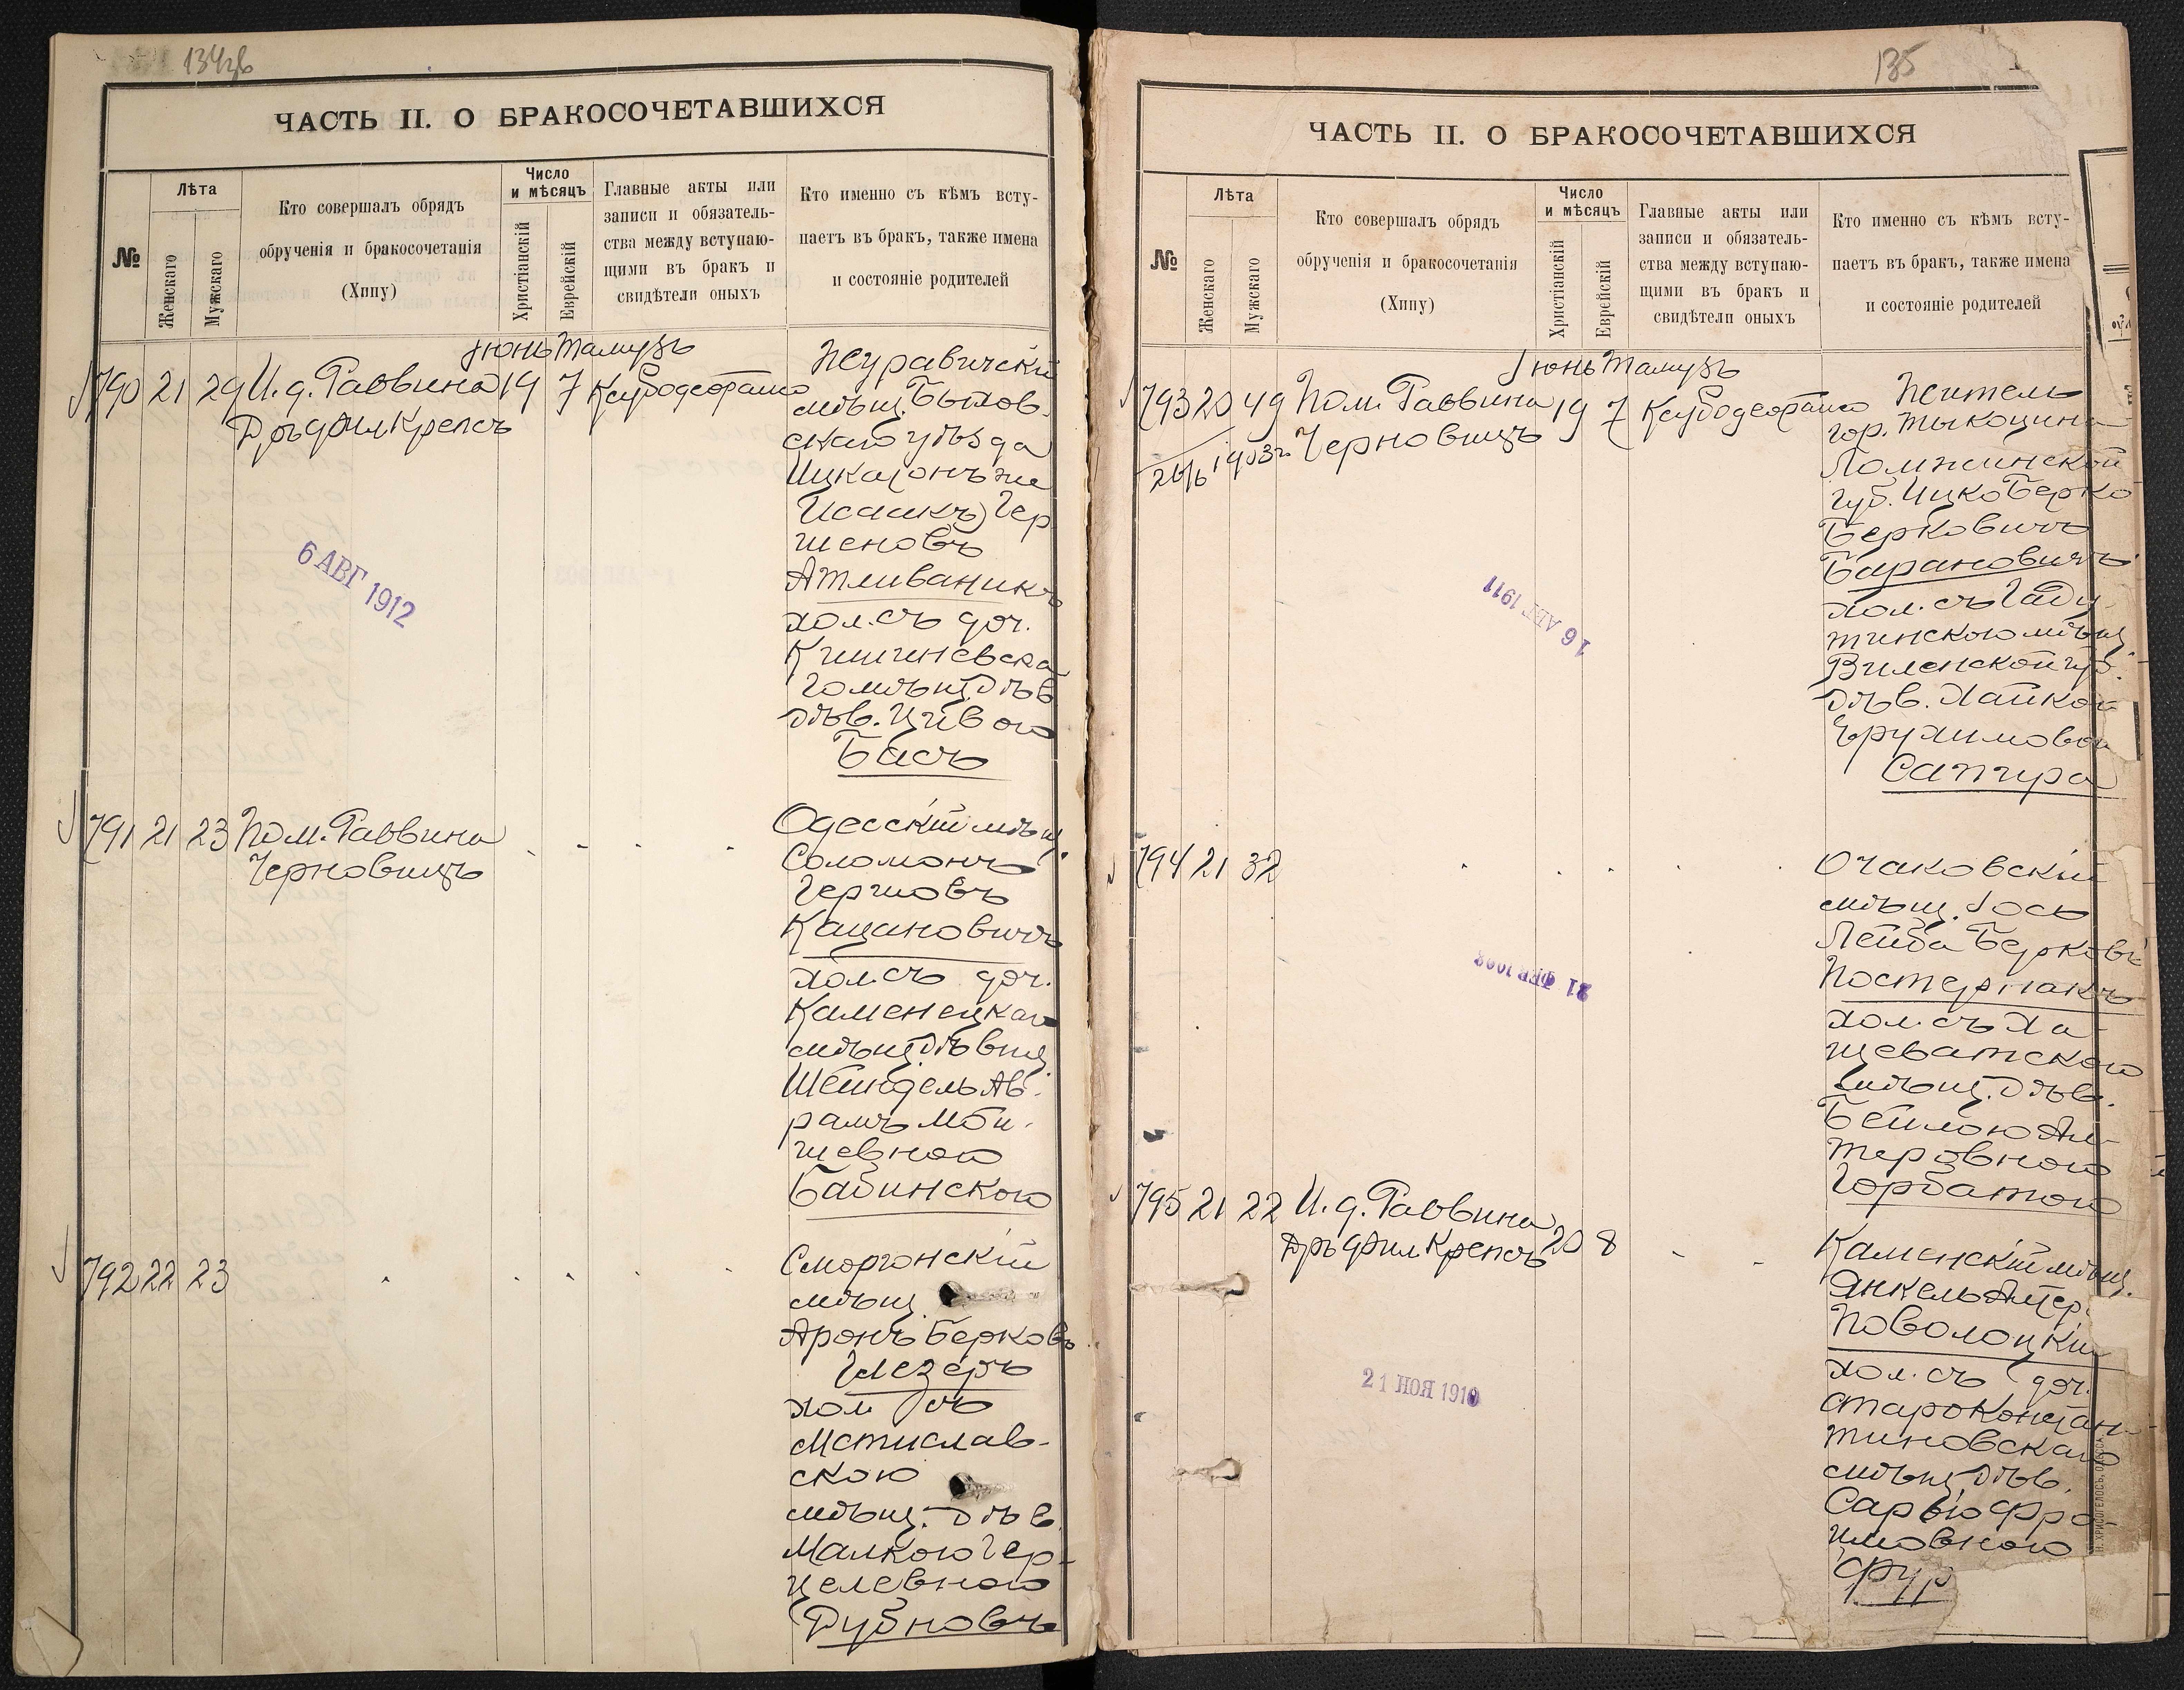 134об
ЧАСТЬ II. О БРАКОСОЧЕТАВШИХСЯ
№
Лѣта
Женскаго
Мужскаго
Кто совершалъ обрядъ
обрученія и бракосочетанія
(Хипу)
Число
и мѣсяцъ
Христіанскій
Еврейскій
Главные акты или
записи и обязатель-
ства между вступаю-
щими въ бракъ и
свидѣтели оныхъ
Кто именно съ кѣмъ всту-
паетъ въ бракъ, также имена
и состояніе родителей
Іюнь Тамузъ
790 21 29 И. д. Раввина 19 7
Др. Крепсъ
мѣщ. Быхов-
скаго уѣзда
Ицка (онъ же
Исаакъ) Гер
шеновъ
Атливаникъ
хол. съ доч.
Кишиневска
го мѣщ.
дѣв. Цивою
Басъ
6 АВГ 1912
791 21 23 Пом. Раввина
Черновицъ
Одесскій мѣщ.
Соломонъ
Гершовъ
Кацановичъ
хол. съ доч.
Каменецкаго
мѣщ. дѣвиц.
Шейндель Ав-
рамъ Мои-
шевною
Бабинскою
792 22 23
Сморгонскій
мѣщ.
Аронъ Берковъ
Глезеръ
хол съ
Мстислав-
скою
мѣщ. дѣв.
Малкою Гер-
целевною
Дубновъ
135
ЧАСТЬ II. О БРАКОСОЧЕТАВШИХСЯ
№
Лѣта
Женскаго
Мужскаго
Кто совершалъ обрядъ
обрученія и бракосочетанія
(Хипу)
Число
и мѣсяцъ
Христіанскій
Еврейскій
Главные акты или
записи и обязатель-
ства между вступаю-
щими въ бракъ и
свидѣтели оныхъ
Кто именно съ кѣмъ всту-
паетъ въ бракъ, также имена
и состояніе родителей
Іюнь Тамузъ
793 20 49 Пом. Раввина 19 7
26/6 1903г. Черновицъ
Житель
гор. Тыкоцина
Ломжинской
губ. Ицко Берко
Берковичъ
Барановичъ
хол. съ Гаду
тишскою мѣщ.
Виленской губ.
дѣв. Хайкою
Ерухимовой
Сапира
16 АВГ 1911
794 21 32
Очаковскій
мѣщ. Іось
Лейба Берковъ
Постернакъ
хол. съ Ха-
щеватскою
мѣщ. дѣв.
Бейлою Ал-
теровною
Горбатою
21 ФЕВ
795 21 22 И. д. Раввина 20 8
Др. Крепсъ
Каменскій мѣщ.
Янкель
Поволоцкій
хол. съ доч.
Староконстан-
тиновскаго
мѣщ. дѣв.
Сарою Фро-
имовною
Фур
21 НОЯ 1910